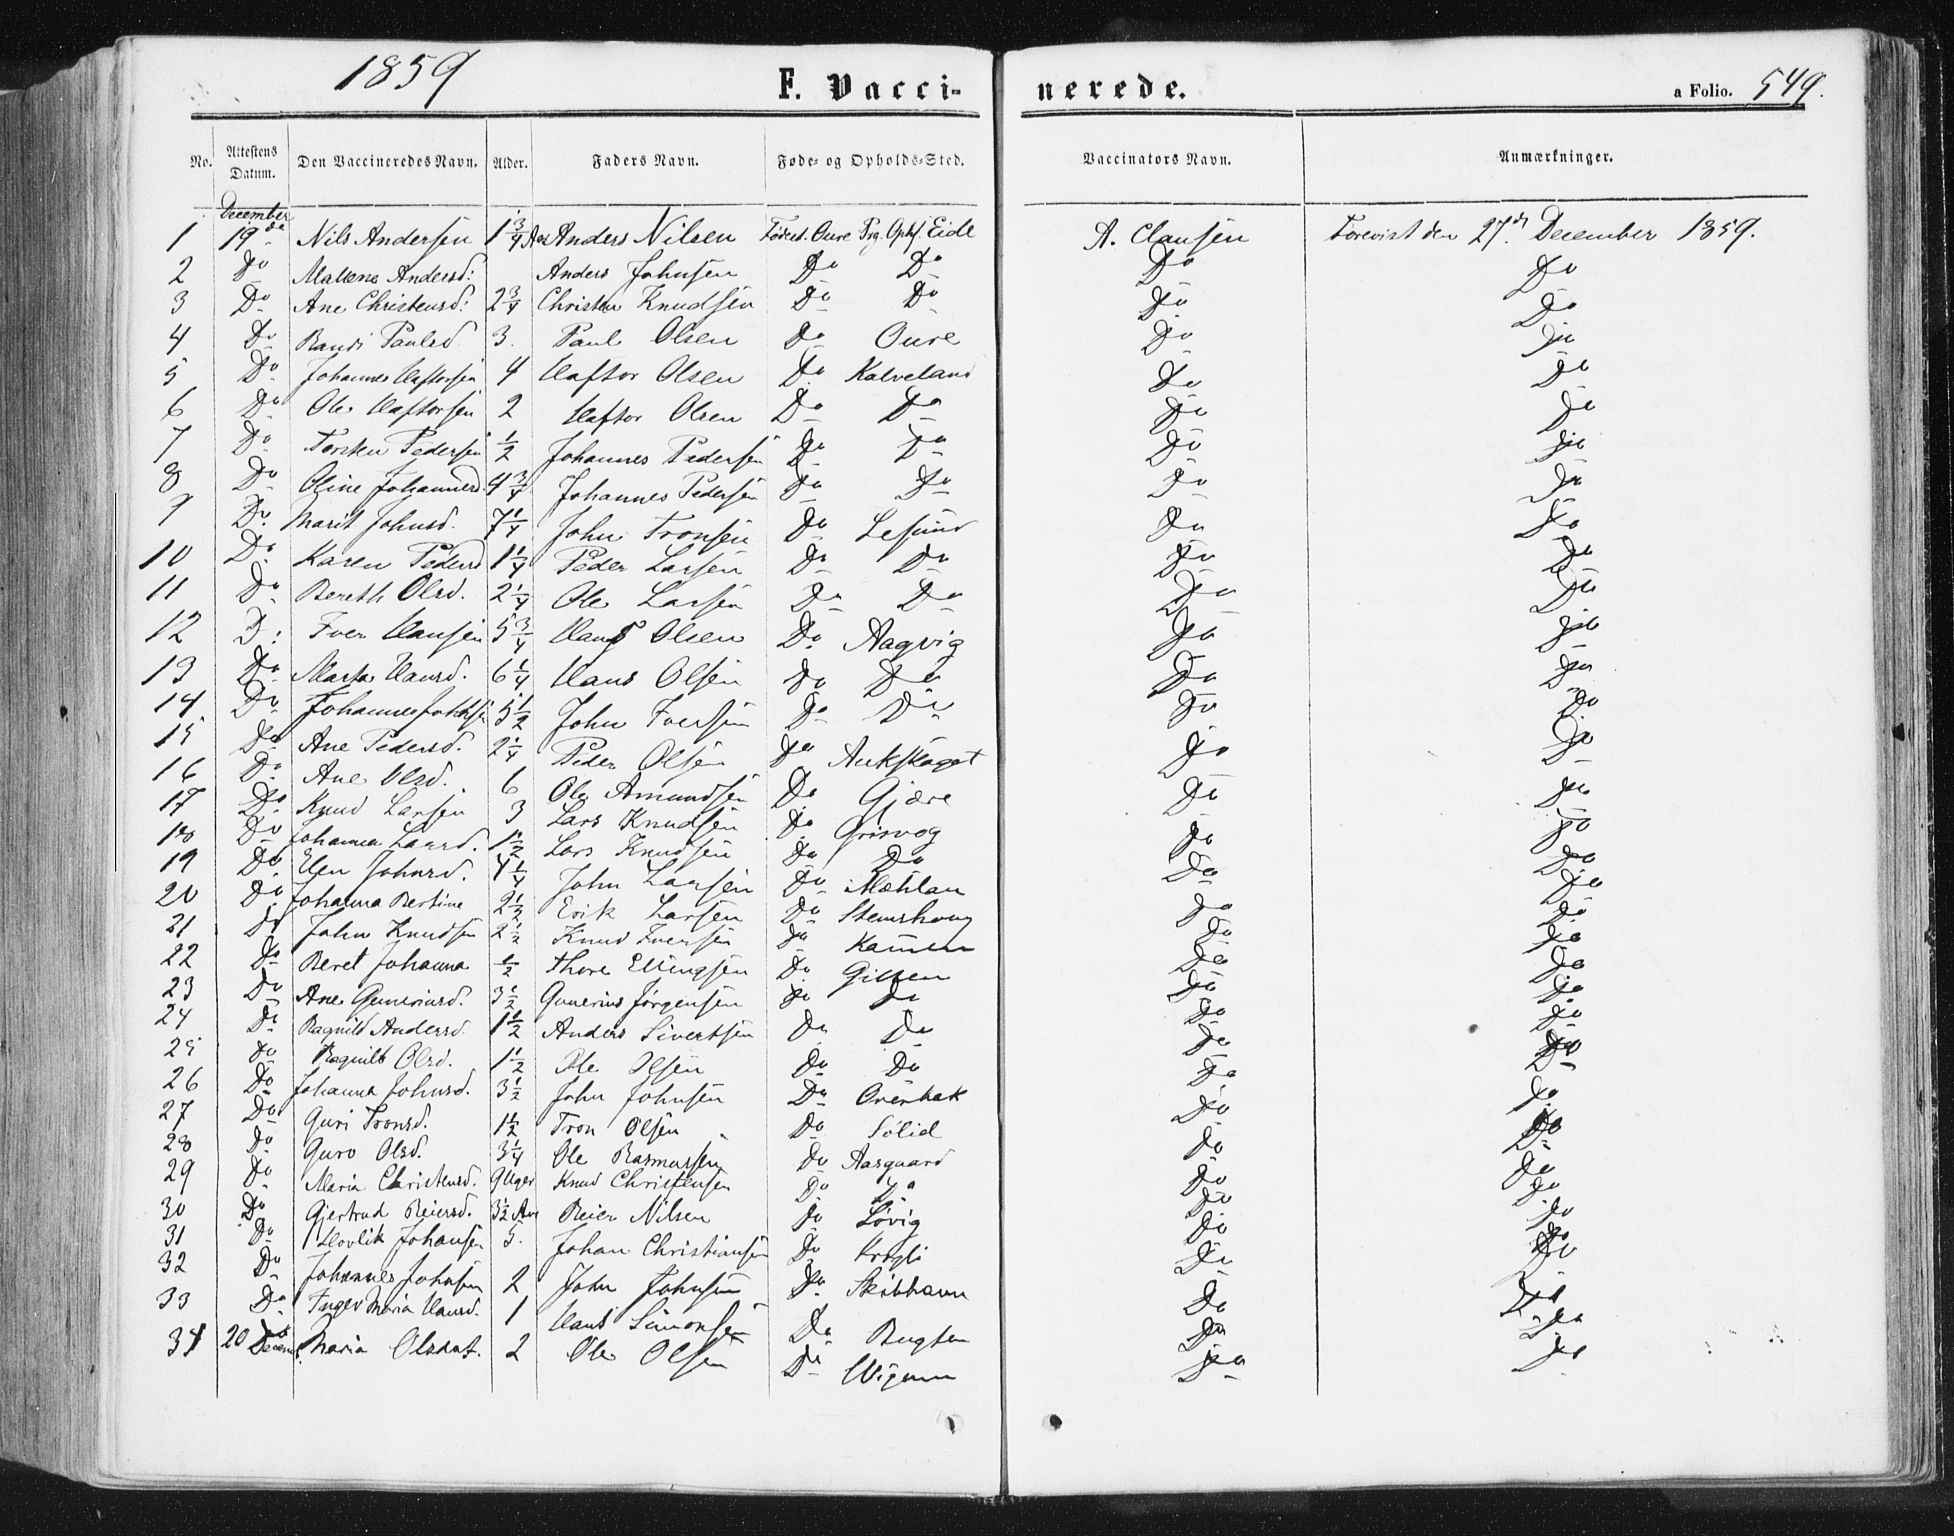 1859 F. Vacci- nerede. a Folio. 549.
No. Attestens Datum. Den Vaccineredes Navn. Alder. Faders Navn. Føde- og Opholds-Sted. Vaccinators Navn. Anmærkninger.
December
1 19de Nils Andersen 1 3/4 Aar Anders Nilsen Fødest. Oure Prg. Oph. Eide A. Clausen Forevist den 27de December 1859.
2 Do Anders Johnsen Do Do Do Do
3 Do Ane Christensd: 2 3/4 Christen Knudsen Do Do Do Do
4 Do Randi Paulsd 3. Paul Olsen Do Oure Do Do
5 Do Johannes Haftorsen 4 Haftor Olsen Do Kalveland Do Do
6 Do Ole Haftorsen 2 Haftor Olsen Do Do Do Do
7 Do Torsten Pedersen 1/2 Johannes Pedersen Do Do Do Do
8 Do Oline Johannesd. 4 3/4 Johannes Pedersen Do Do Do Do
9 Do Marit Johnsd. 7 1/4 John Tronsen Do Lesund Do Do
10 Do Karen Pedersd 1 1/4 Peder Larsen Do Do Do Do
11 Do Bereth Olsd. 2 1/4 Ole Larsen Do Do Do Do
12 D: Iver Hansen 5 3/4 Hans Olsen Do Aagvig Do Do
13 Do Marta Hansd. 6 1/4 Hans Olsen Do Do Do Do
14 Do Johannes Johnsen 5 1/2 John Iversen Do Do Do Do
15 Do Ane Pedersd. 2 1/4 Peder Olsen Do Aukskaget Do Do
16 Do Ane Olsd. 6 Ole Amundsen Do Gjære Do Do
17 Do Knud Larsen 3 Lars Knudsen Do Grisvog Do Do
18 Do Johanna Larsd. 1 1/2 Lars Knudsen Do Do Do Do
19 Do Elen Johnsd. 4 1/4 John Larsen Do Mæhlan Do Do
20 Do Johanna Bertine 2 1/2 Erik Larsen Do Stemshoug Do Do
21 Do John Knudsen 2 1/2 Knud Iversen Do Do Do
22 Do Beret Johanna 1/2 Thore Ellingsen Do Do Do
23 Do Ane Guneriusd. 3 1/2 Gunerius Jørgensen Do Do Do Do
24 Do Ragnild Andersd. 1 1/2 Anders Sivertsen Do Do Do Do
25 Do Ragnild Olsd. 1 1/2 Ole Olsen Do Do Do Do
26 Do Johanna Johnsd. 3 1/2 John Johnsen Do Overbak Do Do
27 Do Guri Tronsd. 1 1/2 Tron Olsen Do Solid Do Do
28 Do Guro Olsd. 3 1/4 Ole Rasmussen Do Aasguard Do Do
29 Do Maria Christensd. 9 Uger Knud Christensen Do Do Do Do
30 Do Gjertrud Reiersd. 3 1/2 Aar Reier Nilsen Do Løvig Do Do
31 Do Hovlik Johansen 5. Johan Christiansen Do Krogli Do Do
32 Do Johannes Johnsen 2 John Johnsen Do Skibhavn Do Do
33 Do Inger Maria Hansd. 1 Hans Simonsen Do Bugten Do Do
34 20 Decemb. Maria Olsdat. 2 Ole Olsen Do Do Do